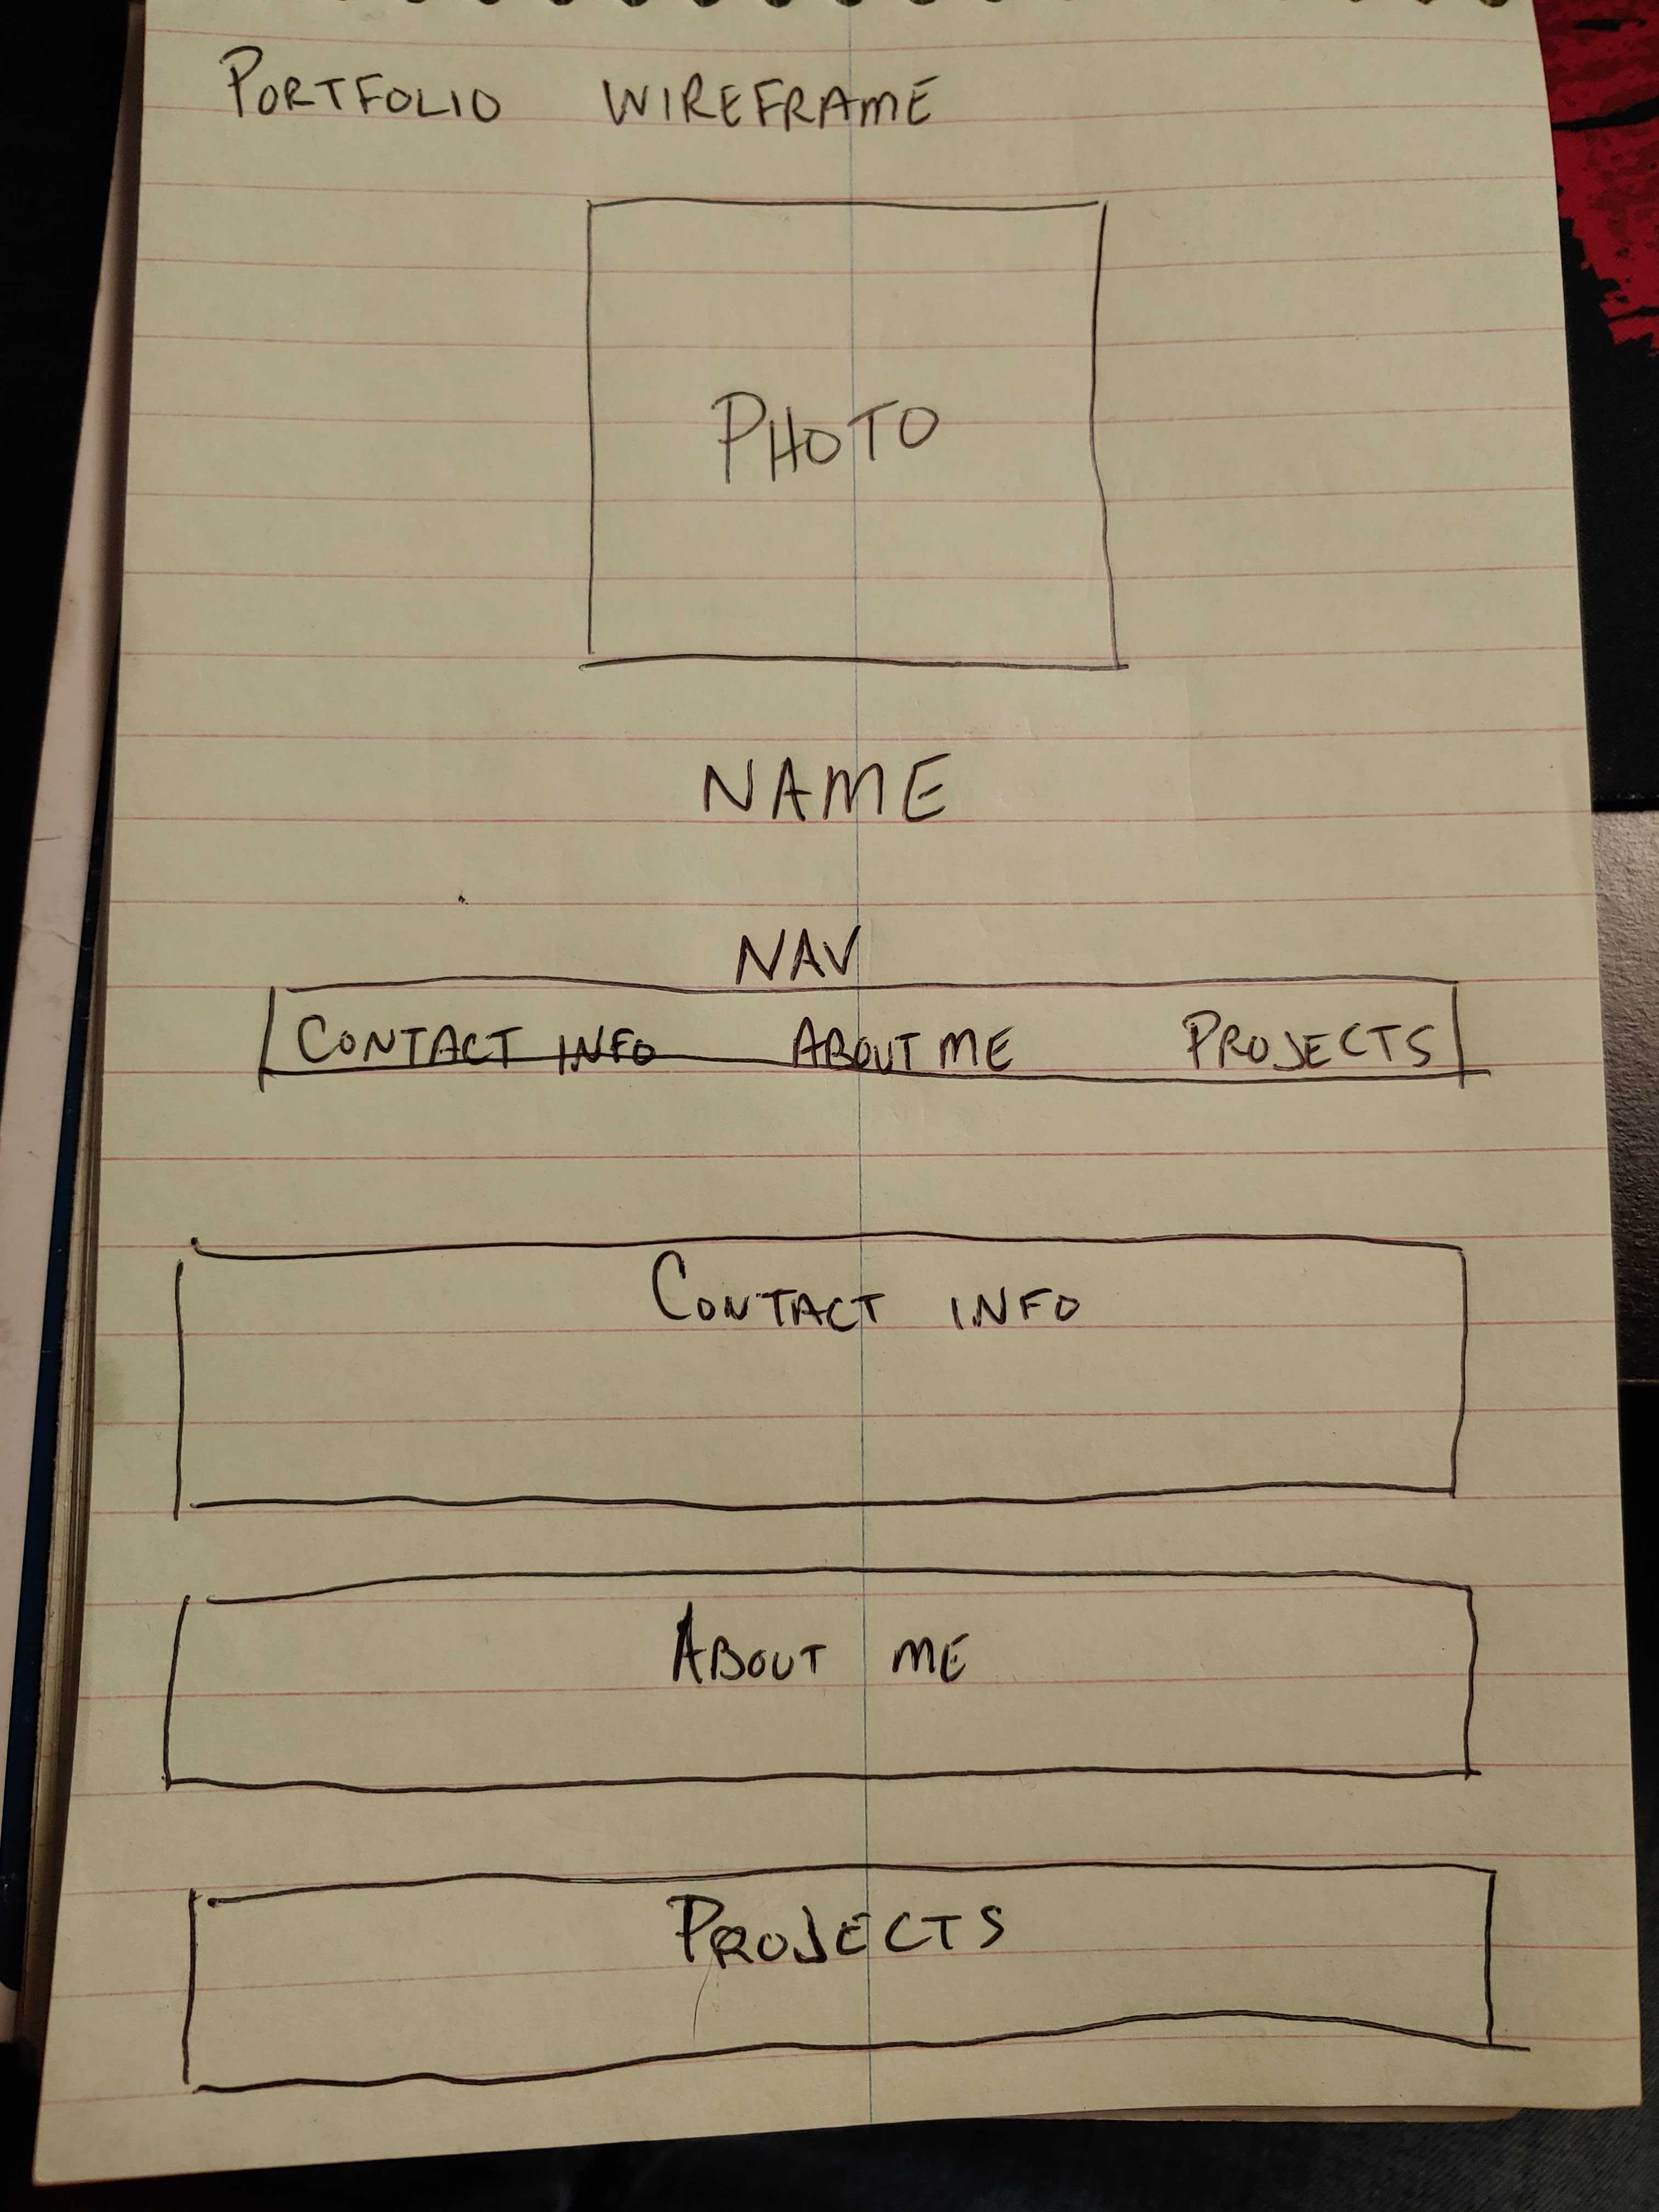 PORTFOLIO WIREFRAME
PHOTO
NAME
NAV
CONTACT INFO ABOUT ME PROJECTS
CONTACT INFO
ABOUT ME
PROJECTS